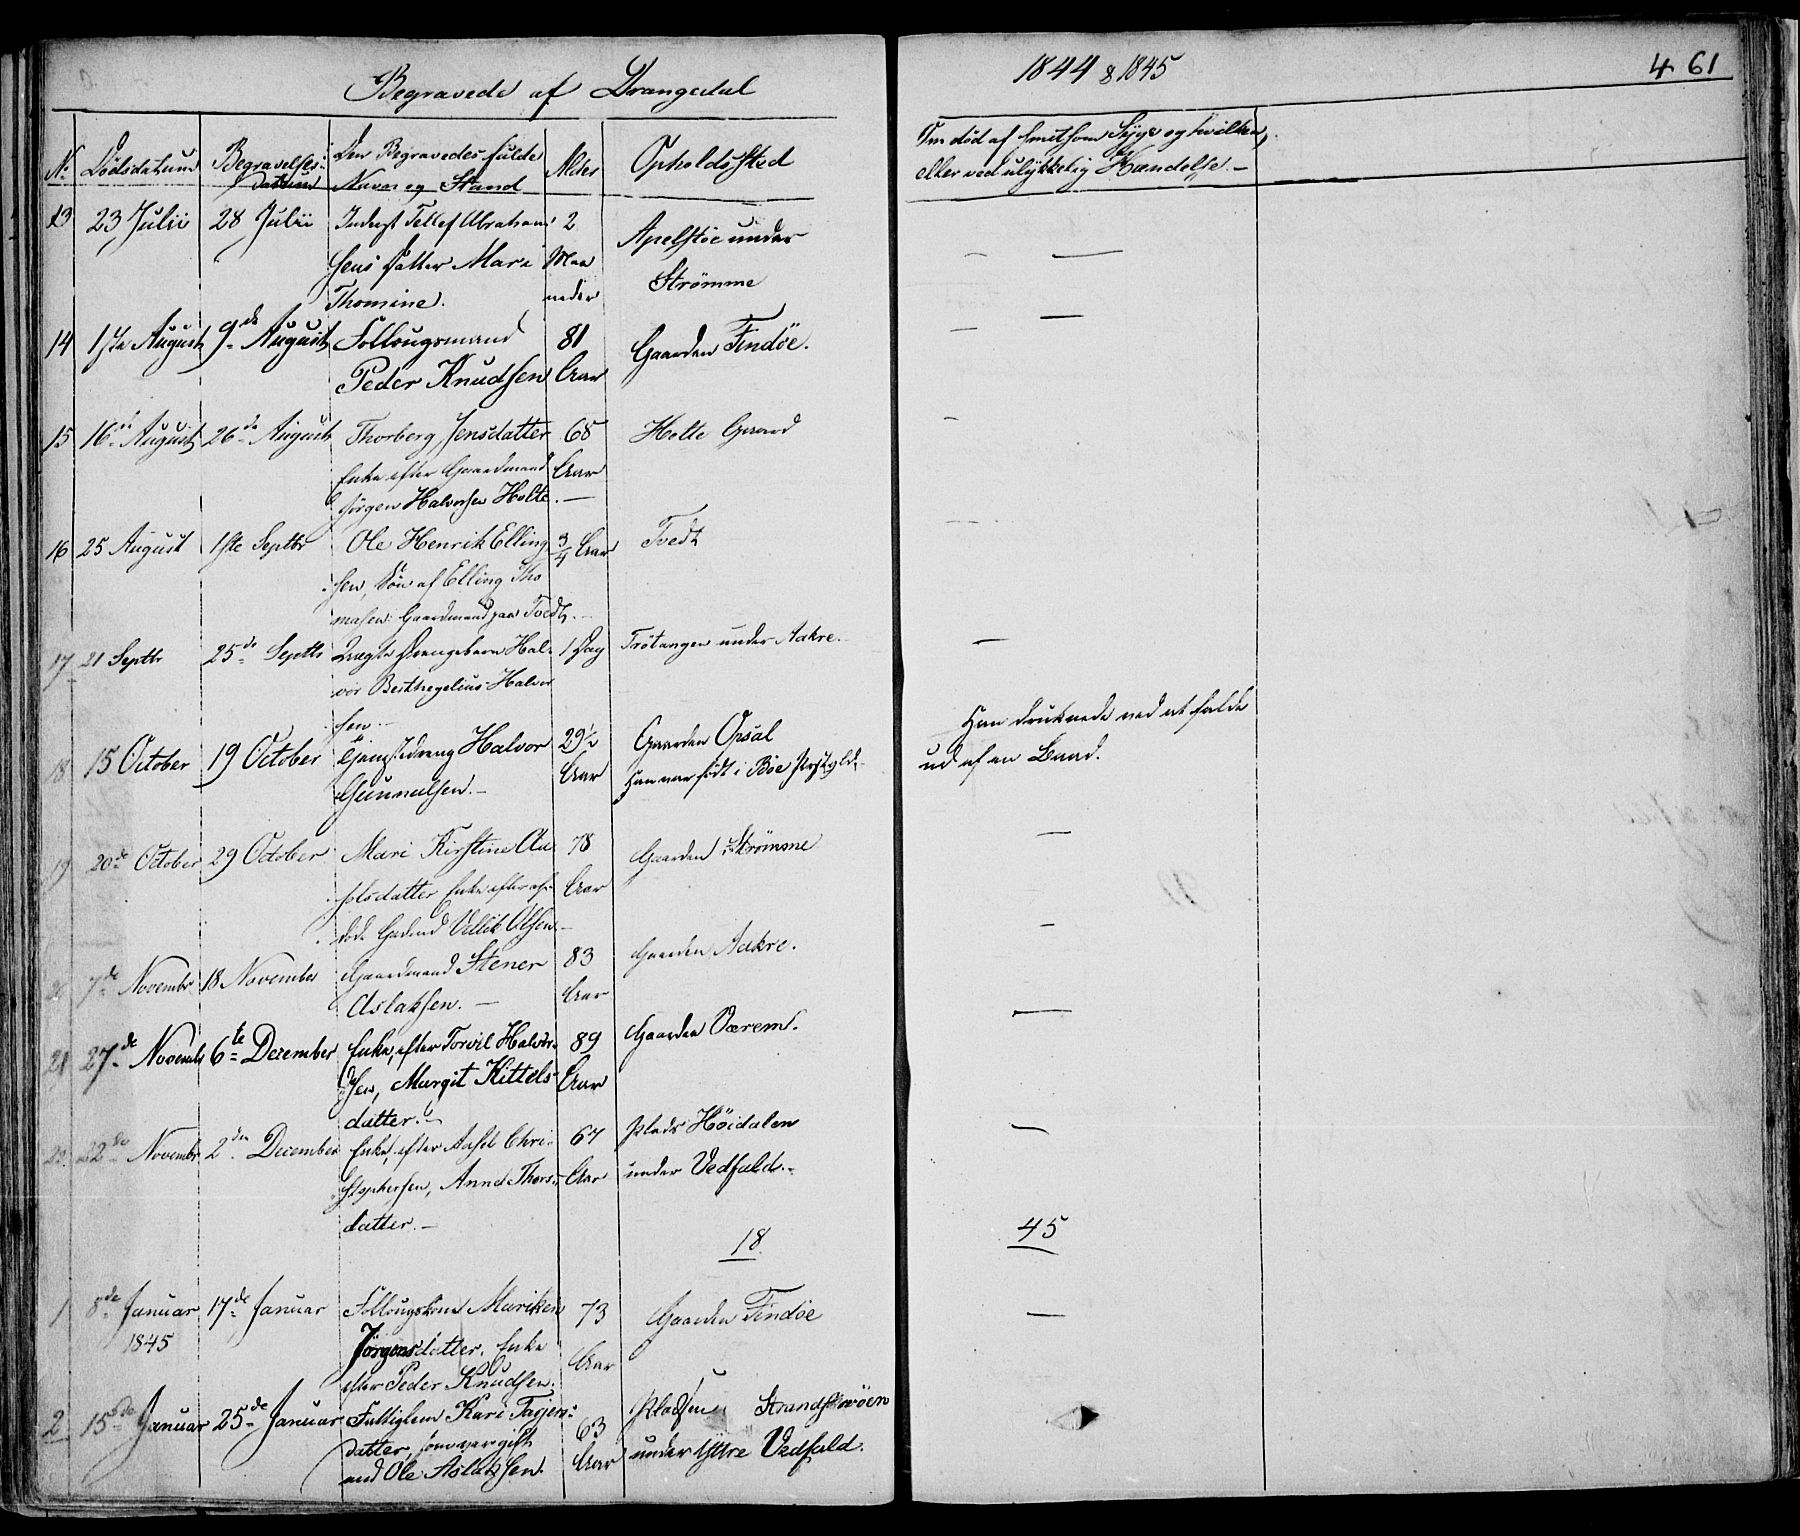 Begravede af Drangedal
1844 & 1845
461
No Dødsdatum Begravelses: Datum Den Begravedes fulde Navn og Stand Alder Opholdssted
Om død af smitsom Syge og hvilken,
eller ved ulykkelig Hændelse.
13 23 Julii 28 Julii Inderst Tellef Abraham
sens Datter Mari
Thomine.
2
Maa
neder
Apelstøe under
Strømme
14 1ste August 9de August Follougsmand
Peder Knudsen
81
Aar
Gaarden Findøe.
15 16de August 26de August Thorberg Jensdatter
Enke efter Gaardmand
Jørgen Halvorsen Holte.
68
Aar
Holte Gaard
16 25 August 1ste Septbr Ole Henrik Elling
sen, Søn af Elling Tho
masen Gaardmand paa Tvedt.
3/4 Aar
Tvedt
17 21 Septbr 25de Septbr Uægte Drengebarn Hal-
vor Berthegelius Halvor
sen.
1 Dag
Trötangen under Aakre.
18 15 October 19 October Tjenestedreng Halvor
Gunnulsen.
29 1/2
Aar
Gaarden Opsal
Han var født i Bøe Præstgld.
Han druknede ved at falde
ud af en Baad.
19 20de October 29 October Mari Kirstine
datter Enke efter af-
døde Gdmd Vellik Olsen
78
Aar
Gaarden Strømme
20 7de Novembr 18 November Gaardmand Stener
Aslaksen.
83
Aar
Gaarden Aakre.
21 27de Novembr 6te December Enke, efter Torvil Halvor-
sen, Margit Kittels-
datter.
89
Aar
Gaarden Værem.
22. 22de Novembr 2den December Enke, efter Aslet Chri-
stophersen, Anne Thors-
datter.
67
Aar
Plads Høidalen
under Vedfald.
18
45
1 8de Januar
1845
17de Januar Follougskone Mariken
Jørgensdatter, Enke
efter Peder Knudsen.
73
Aar
Gaarden Findøe
2 15de Januar 25de Januar Fattiglem Kari Tarjers-
datter, som var gift
med Ole Aslaksen.
63
Aar
Pladsen
under Ytre Vedfald.